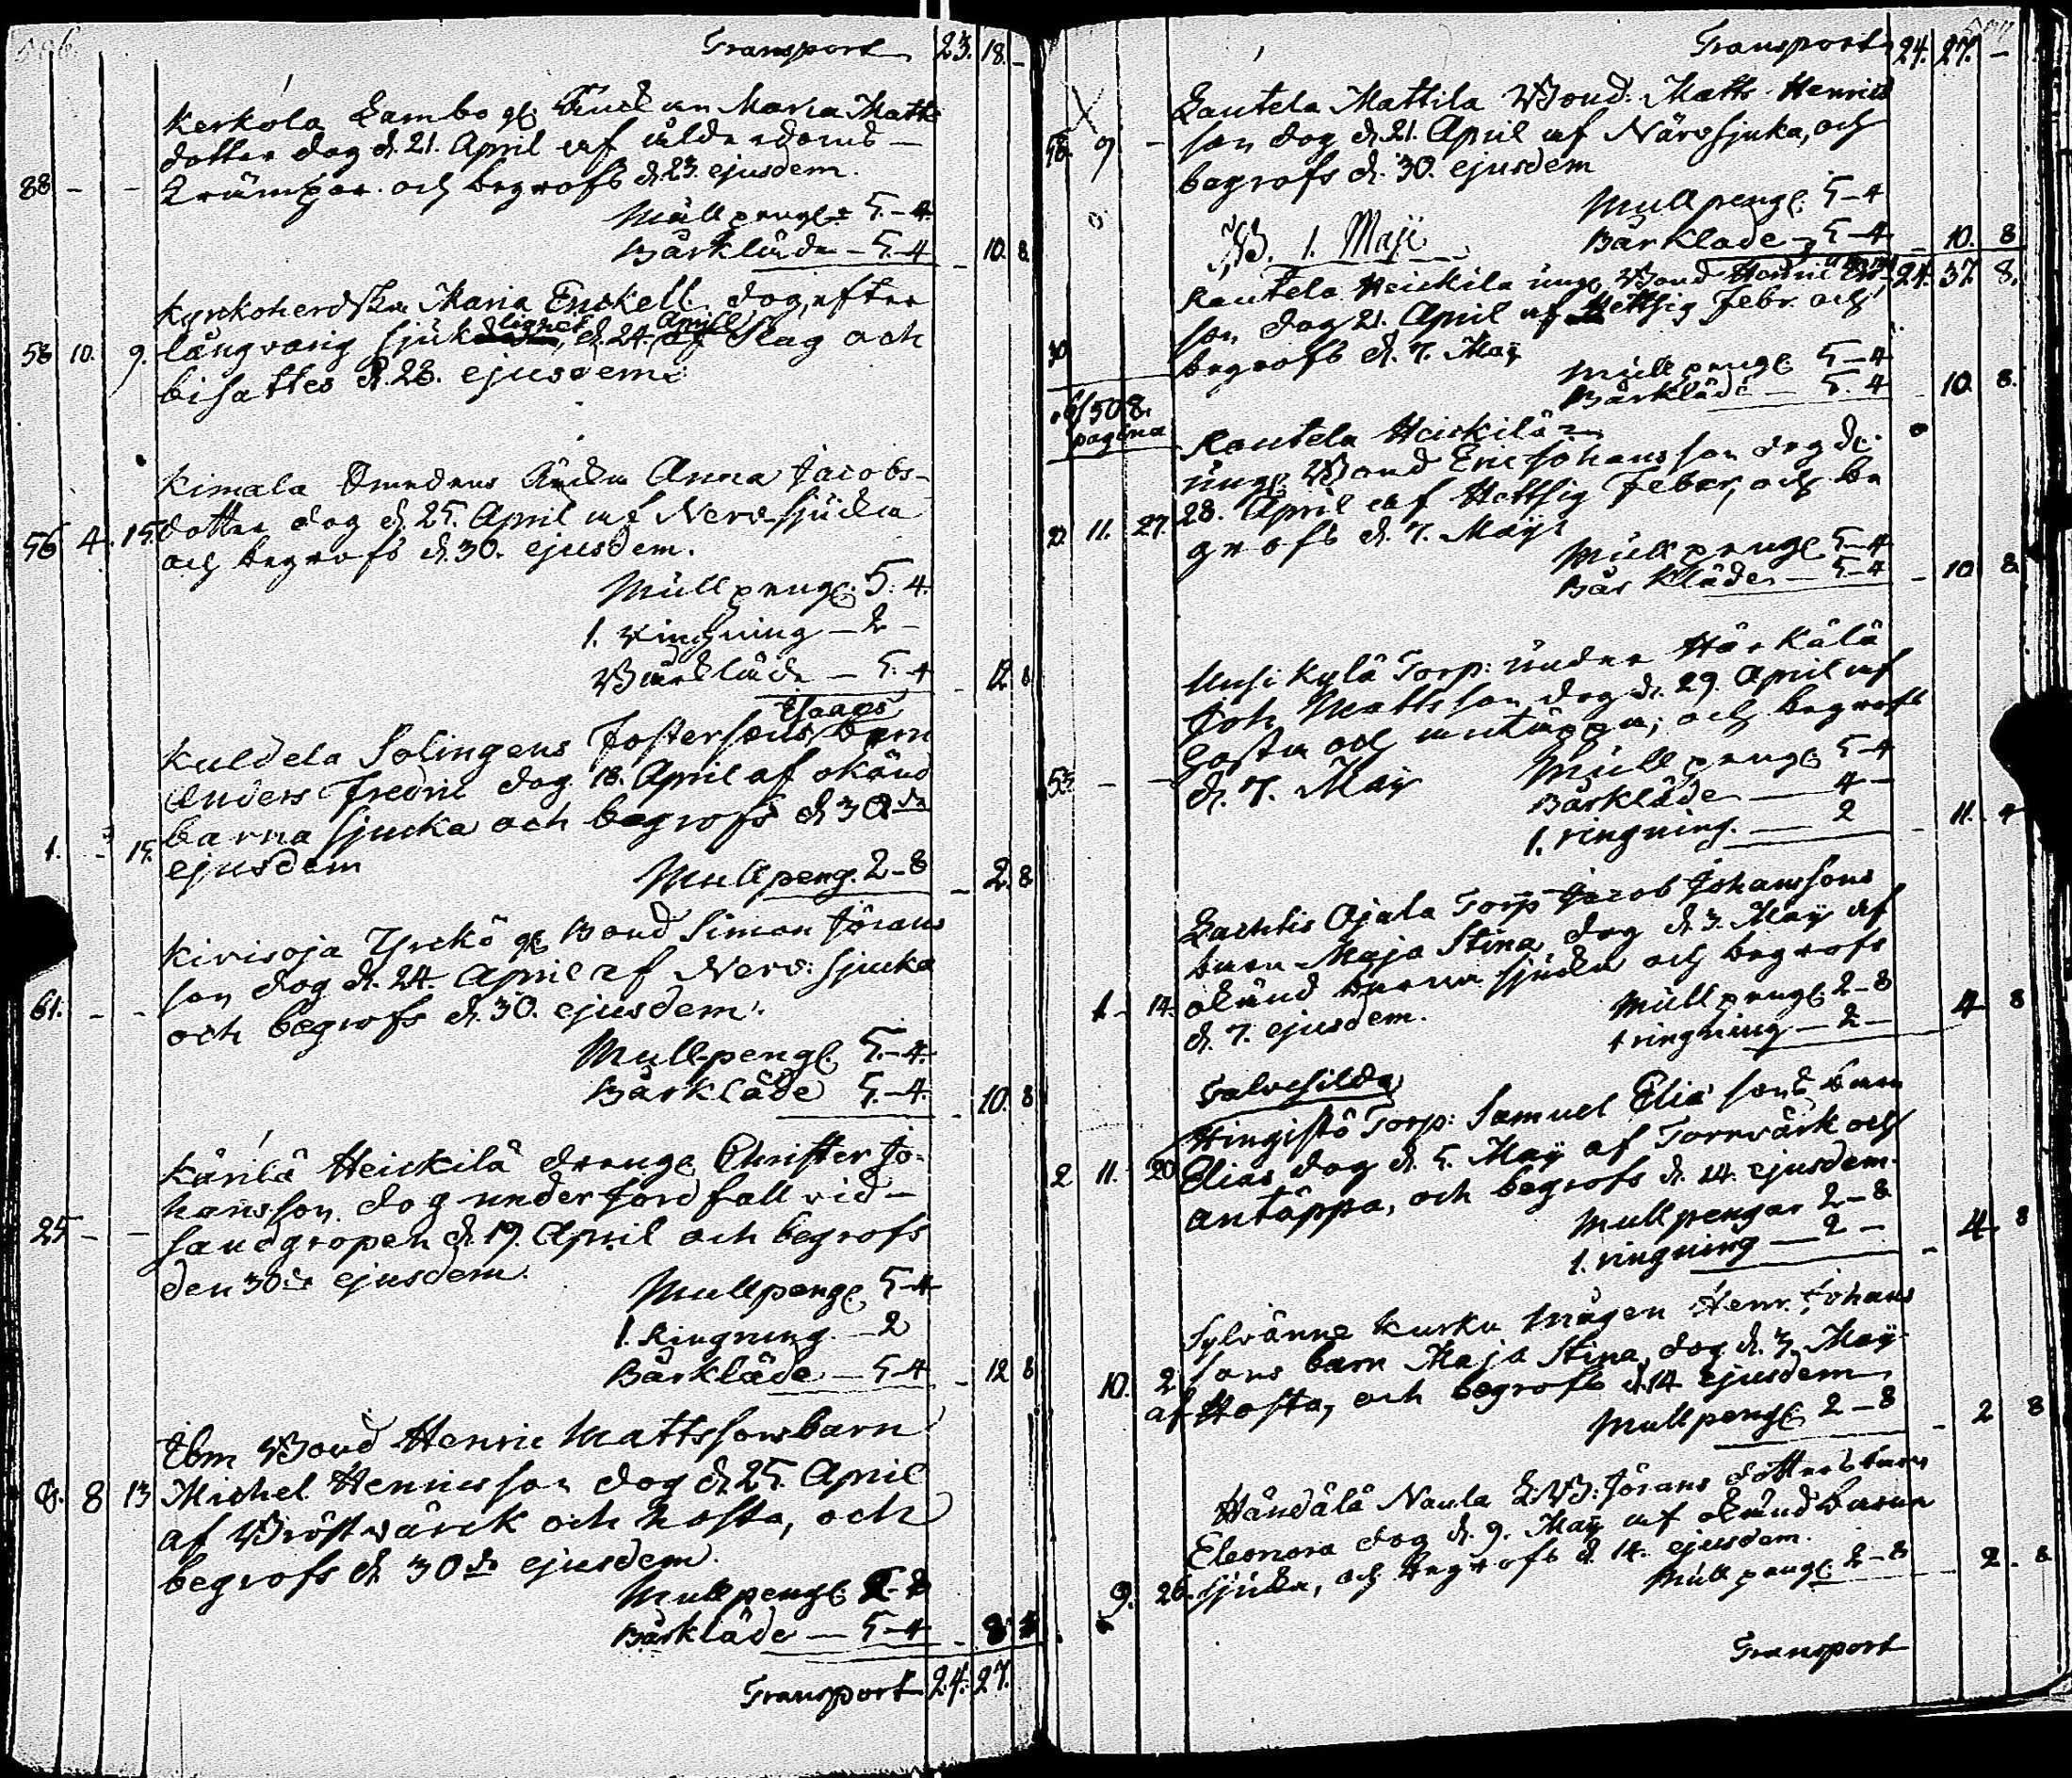 Transport 23. 18. –
Kerkola Lambo gl. Änckan Maria Matts
dotter dog d. 21. April af ålderdoms –
88 – – Krämpor och begrofs d. 23. ejusdem.
Mullpengr 5.–4.
Bårkläde – 5.–4 – 10. 8.
Kyrkoherdskan Maria Enckell dog, efter
58 10. 9. långvarig sjuklighet, d. 24. April af Slag och
bisattes d. 28. ejusdem.
Kimala Smedens Änka Anna Jacobs-
56 4. 15. dotter dog d. 25. April af Nerv-sjuka
och begrofs d. 30. ejusdem.
Mullpeng. 5. 4.
1. ringning – 2 –
Bårkläde – 5.–4 – 12 8
Kuldela Solingens Fostersons Isaacs barn
Anders Fredric dog 18. April af okänd
1. – 15. barna sjucka och begrofs d. 30 da
ejusdem Mullpeng. 2–8 – 2. 8
Kivisoja Yrckö gl. Bond Simon Jörans
61. – – son dog d. 24. April af Nerv: sjucka
och begrofs d. 30. ejusdem.
Mullpeng. 5.–4.
Bårkläde 5.–4. – 10. 8
Kärilä Heickilä dreng Christer Jo-
hansson dog under Jordfall vid –
25 – – sandgropen d. 19. April och begrofs
den 30 de ejusdem.
Mullpeng. 5–4
1. Ringning. – 2
Bårkläde – 5–4 – 12 8
Ibm Bond Henric Mattssons barn
8 13 Michel Henricsson dog d. 25. April
af Bröstvärck och hosta, och
begrofs d. 30 de ejusdem.
Mullpeng.
Bårkläde – 5–4
Transport 24. 27.
Transport 24. 27. –
Lautela Mattila Bond. Matts Henrics
58. 9 – son dog d. 21. April af Närvsjuka, och
begrofs d. 30. ejusdem
Mullpeng. 5–4
NB. 1. Maji Bårkläde – 5–4 – 10. 8
Rautela Heickila ung. Bond Henric 24. 37. 8.
son dog 21. April af Hettsig Febr. och
30 begrofs d. 7. Maÿ
Mullpeng. 5–4
Bårkläde – 5. 4 10. 8.
508.
pagina
Rautela Heickilä
ung. Bond Eric Johansson dog d.
11. 27. 28. April af Hettsig Feber, och be
grofs d. 7. Maÿ
Mullpeng. 5–4
Bårkläde – 5–4 – 10 8
Uusi Kylä Torp: under Härkälä
Joh. Mattsson dog d. 29. April af
hosta och antäppa, och begrofs
53. – – d. 7. Maÿ Mullpeng. 5–4
Bårkläde – 4 –
1. ringning. – 2 – 11. 4
Lachtis Ojala Torp Jacob Johanssons
barn Maja Stina dog d. 3. Maÿ af
1 – 14. okänd barna sjuka och begrofs
d. 7. ejusdem. Mullpeng. 2–8
1 ringning – 2 – 4 8
Talvesilda
Hingistö Torp: Samuel Elia sons barn
2 11. 20 Elias dog d. 5. Maÿ af Torrvärk och
antäppa, och begrofs d. 14. ejusdem.
Mullpengar 2–8
1. ringning – 2 – – 4. 8
Sylvänne Kurku mågen Henr. Johans
10. 2 sons barn Maja Stina dog d. 3. Maÿ
af Hosta, och begrofs d. 14 ejusdem
Mullpeng. 2–8 – 2 8
Händälä Naula Jörans dotters barn
Eleonora dog d. 9. Maÿ af okänd barna
9. 26. sjuka, och begrofs d. 14. ejusdem.
Mullpeng. 2–8 2. 8
Transport